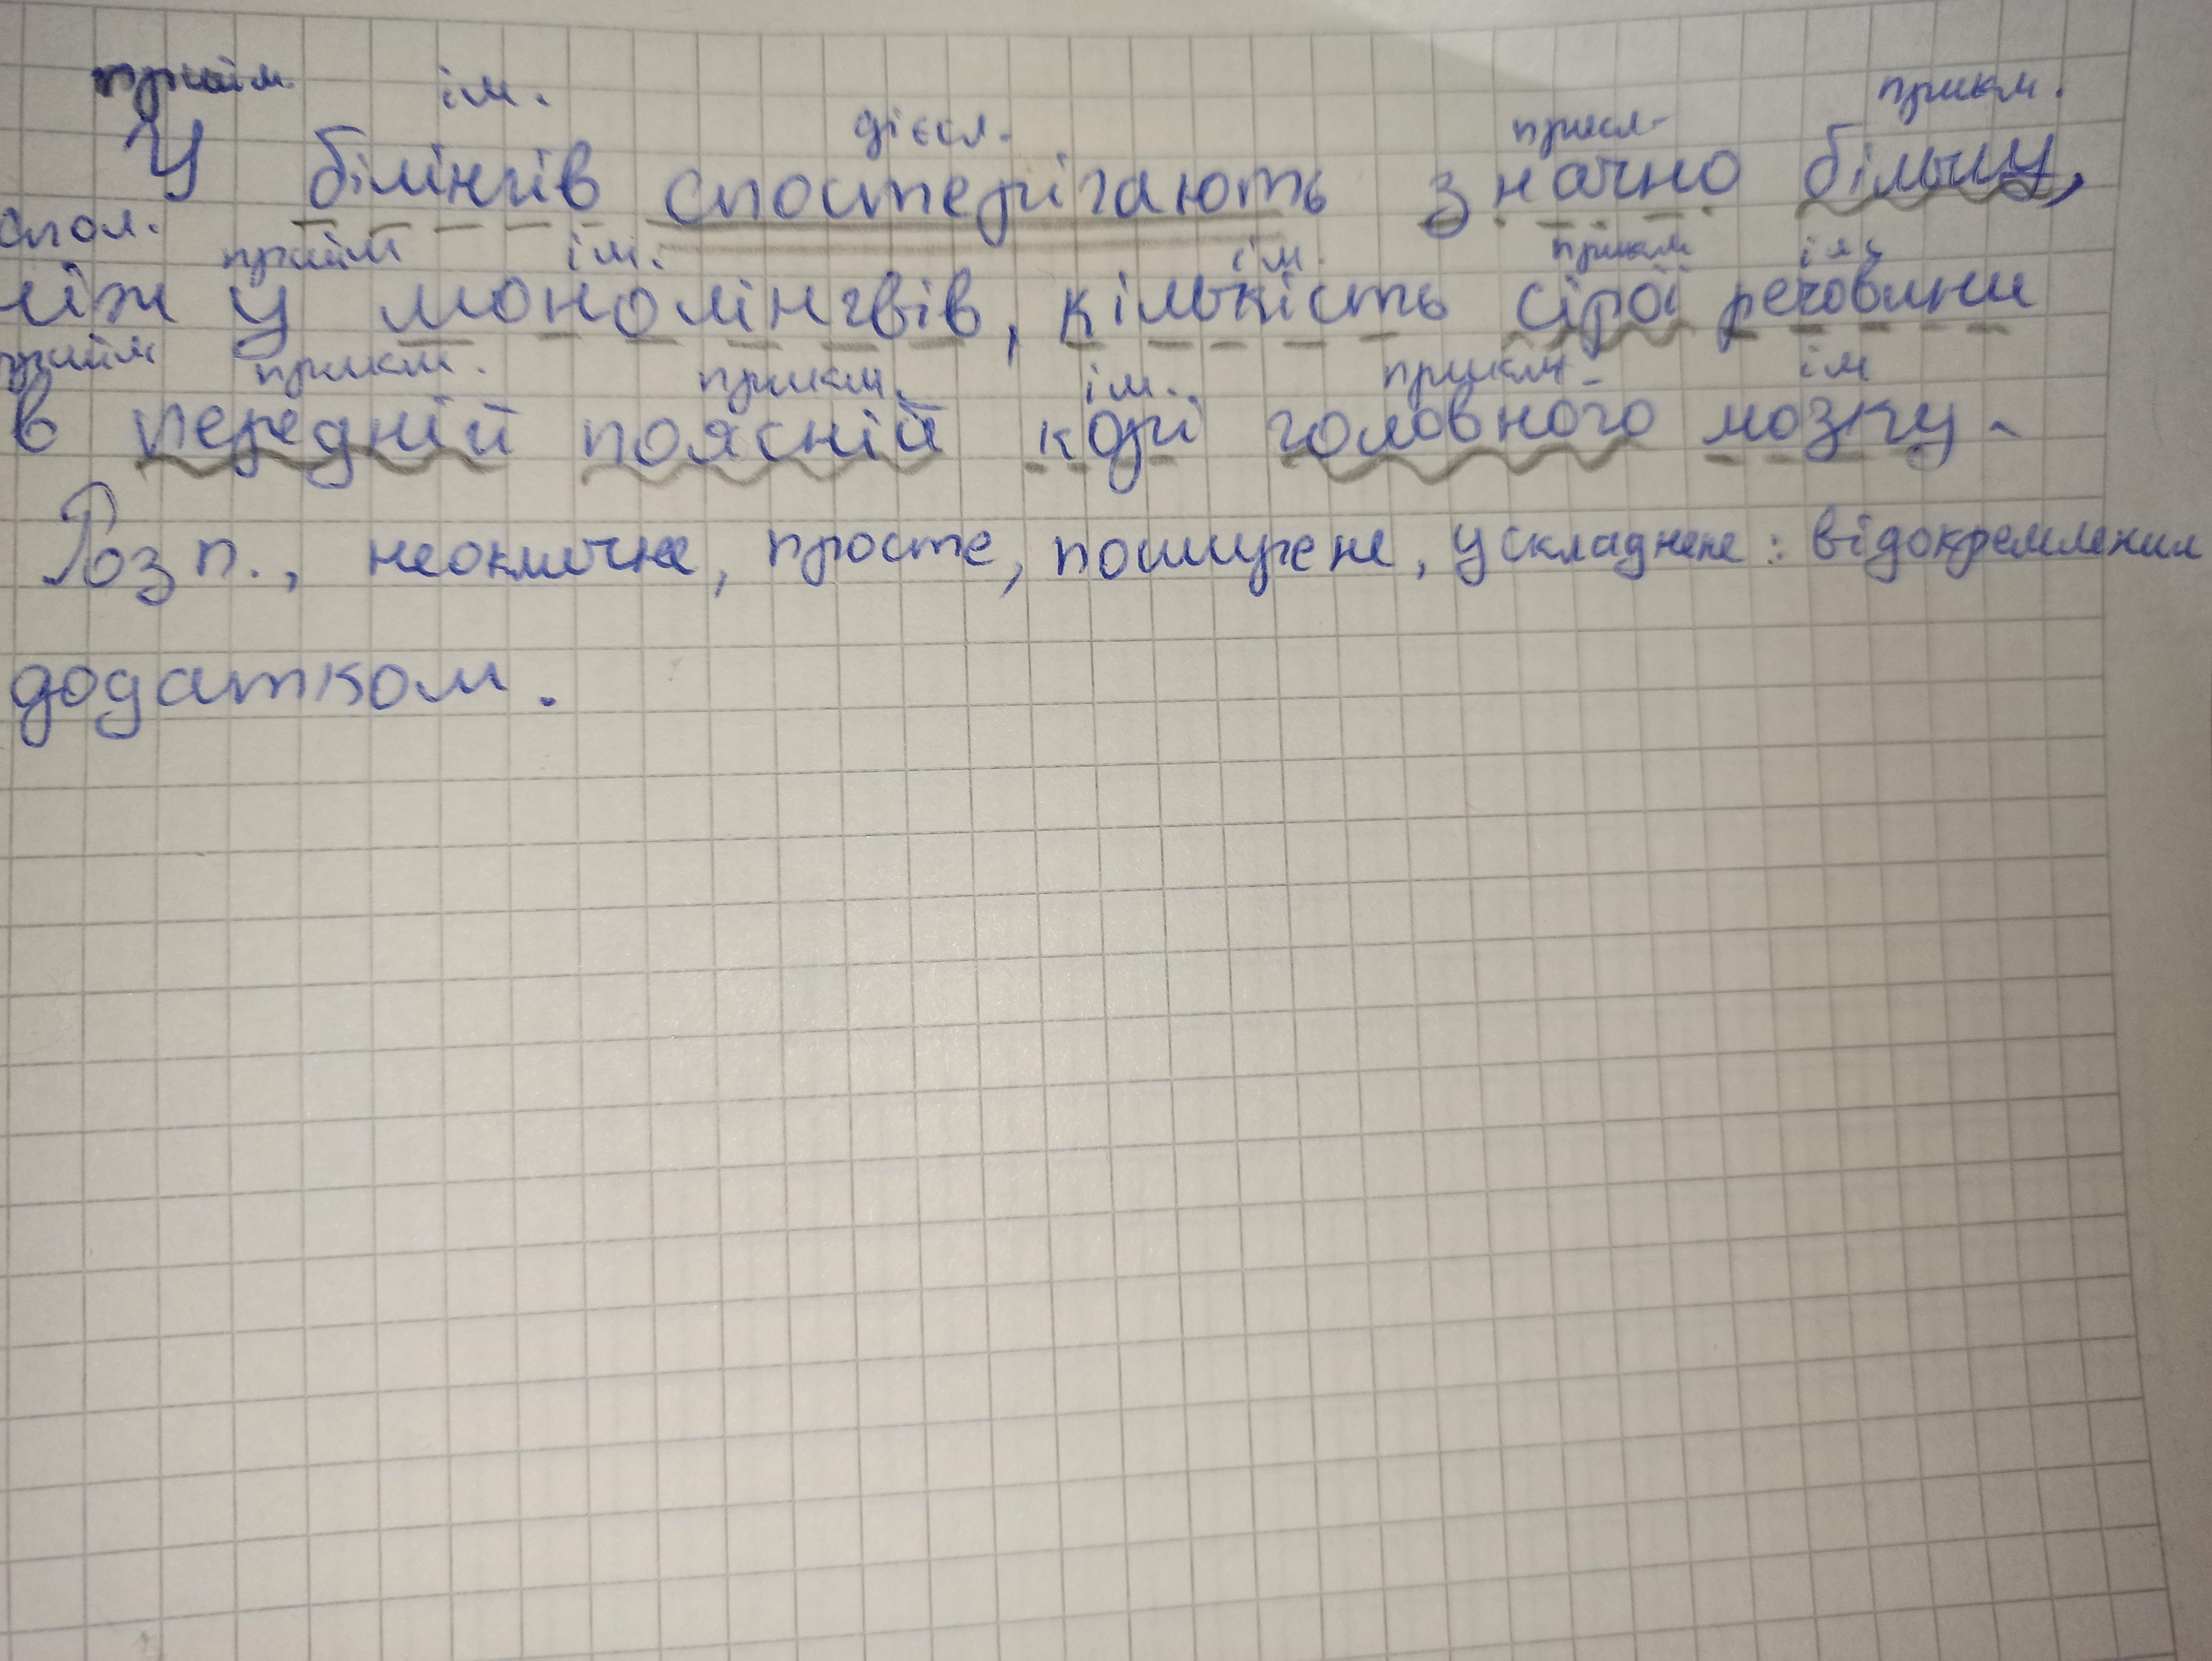 прийм. ім. дієсл. присл. прикм.
У білінгів спостерігають значно більшу,
спол. прийм ім. ім. прикм ім.
ніж у монолінгвів, кількість сірої речовини
прийм прикм. прикм. ім. прикм. ім
в передній поясній корі головного мозку.
Розп., неоклична, просте, поширене, ускладнене: відокремленим
додатком.